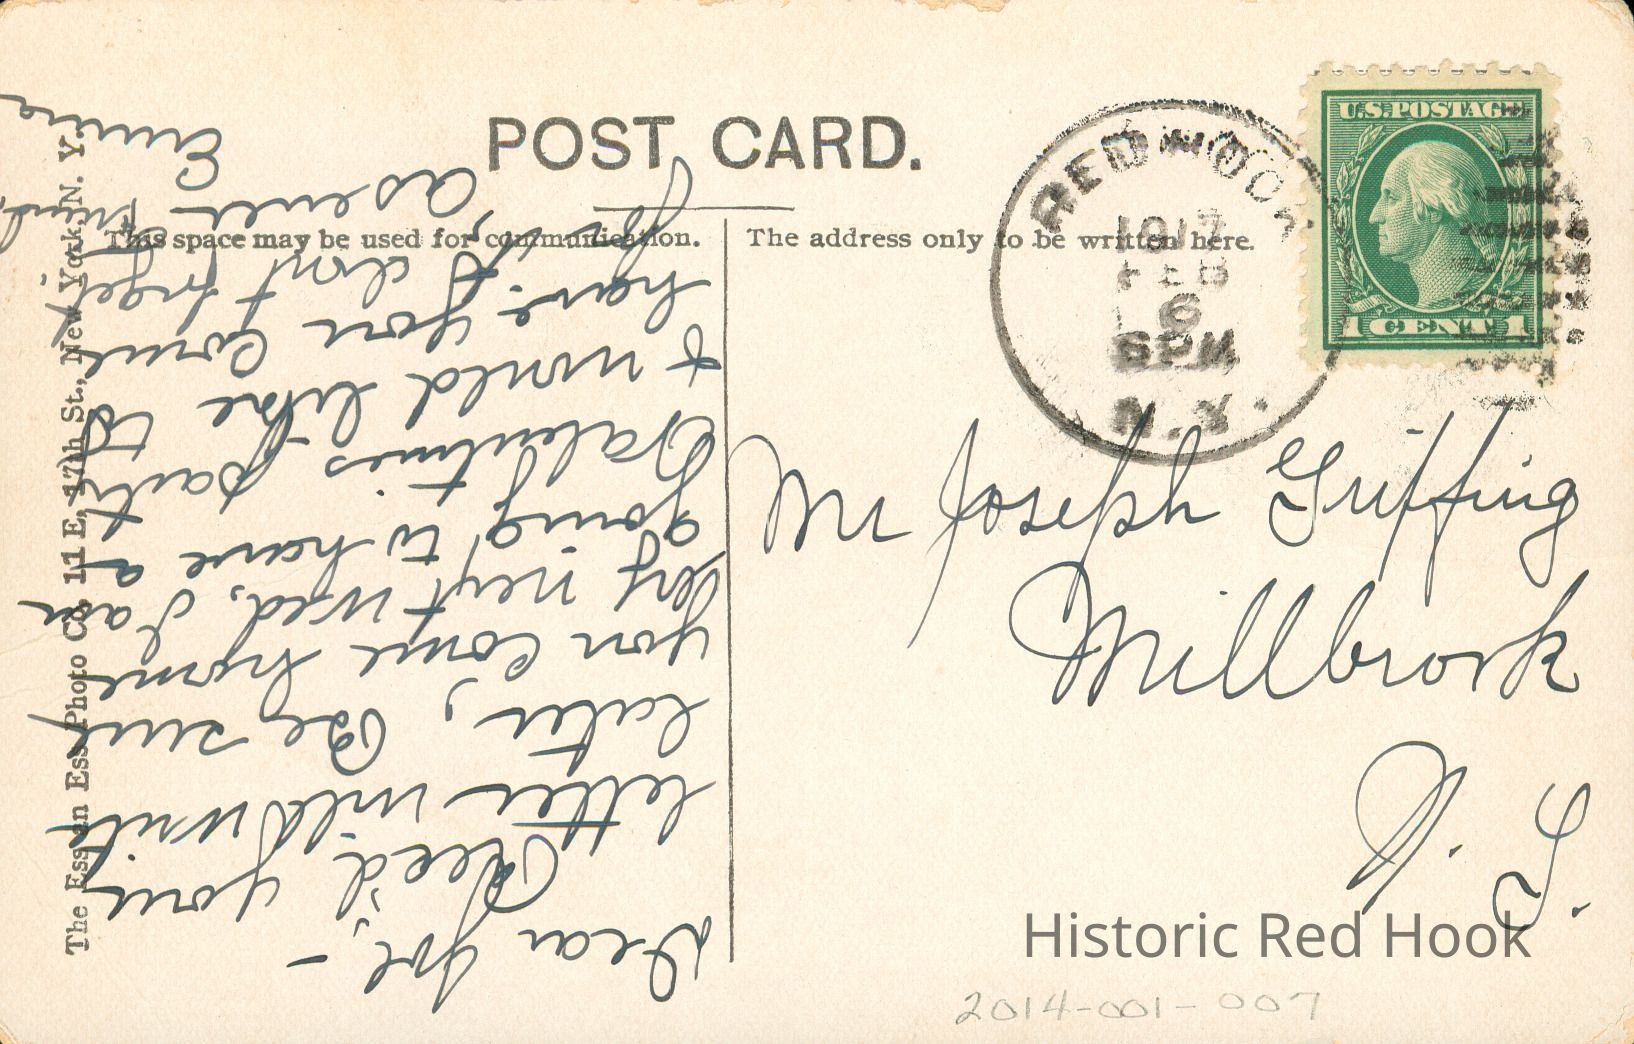 POST CARD.
This space may be used for communication.
The address only to be written here.
The Essen Ess Photo Co. 11 E, 17th St., New York, N. Y.
RED HOOK
1917
FEB
6
6PM
N.Y.
U.S. POSTAGE
1 CENT 1
Mr Joseph Griffing
Millbrook
N. Y.
Dear Joe,-
Rec'd your
letter will write
later, Be sure
you come home
next wed, I am
going to have a
Valentines party
& would like to
have you come
Joe, don't forget,
as ever
friend,
Historic Red Hook
2014-001-007